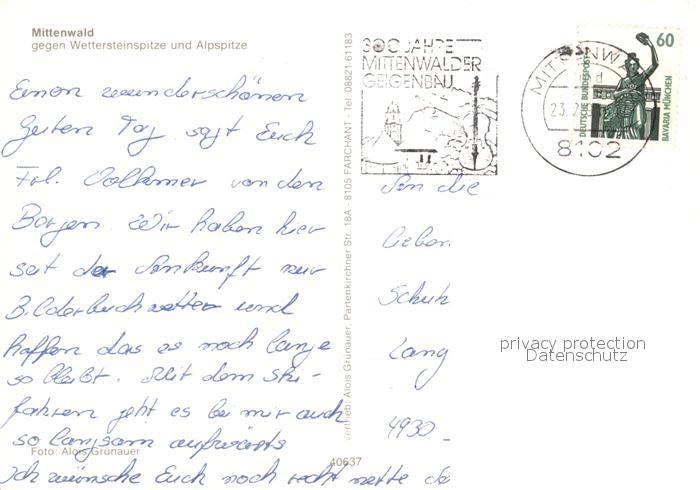 Mittenwald
gegen Wettersteinspitze und Alpspitze
Einen wunderschönen
Guten Tag sagt Euch
Frl. Volkmer von den
Bergen. Wir haben hier
seit der Ankunft nur
Bilderbuchwetter und
hoffen das es noch lange
so bleibt. Mit dem Ski-
fahren geht es bei mir auch
so langsam aufwärts
Ich wünsche Euch noch recht nette
Foto: Alois Grünauer
40637
Vertrieb: Alois Grünauer, Partenkirchner Str. 18A - 8105 FARCHANT - Tel. 08821-61183
300 JAHRE
MITTENWALDER
GEIGENBAU
MITTENW
8102
60
DEUTSCHE BUNDESPOST
BAVARIA MÜNCHEN
An die
lieben
Schütz
Lang
4930
privacy protection
Datenschutz